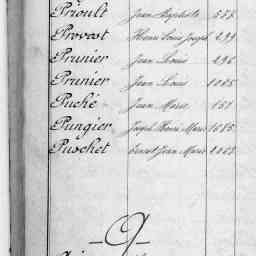 Prioult Jean Baptiste 577
Provost Henri Louis Joseph 299
Prunier Jean Louis 296
Prunier Jean Louis 1085
Puché Jean Marie 151
Pungier Joseph Henri Marie 1585
Puschet Ernest Jean Marie
Q